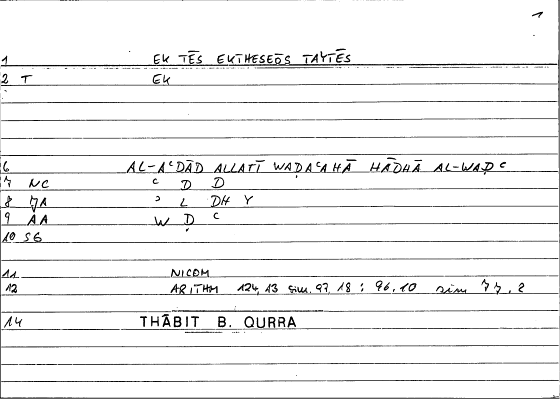 1
1 EK TĒS EKTHESEŌS TAYTĒS
2 T EK
6 AL-AʿDĀD ALLATĪ WAḌAʿAHĀ HĀDHĀ AL-WAḌʿ
7 NC ʿ D D
8 JA ʾ L DH Y
9 AA W Ḍ ʿ
10 SG
11 NICOM
12 ARITHM 124,13 sim. 97,18 : 96,10 sim 77,2
14 THĀBIT B. QURRA